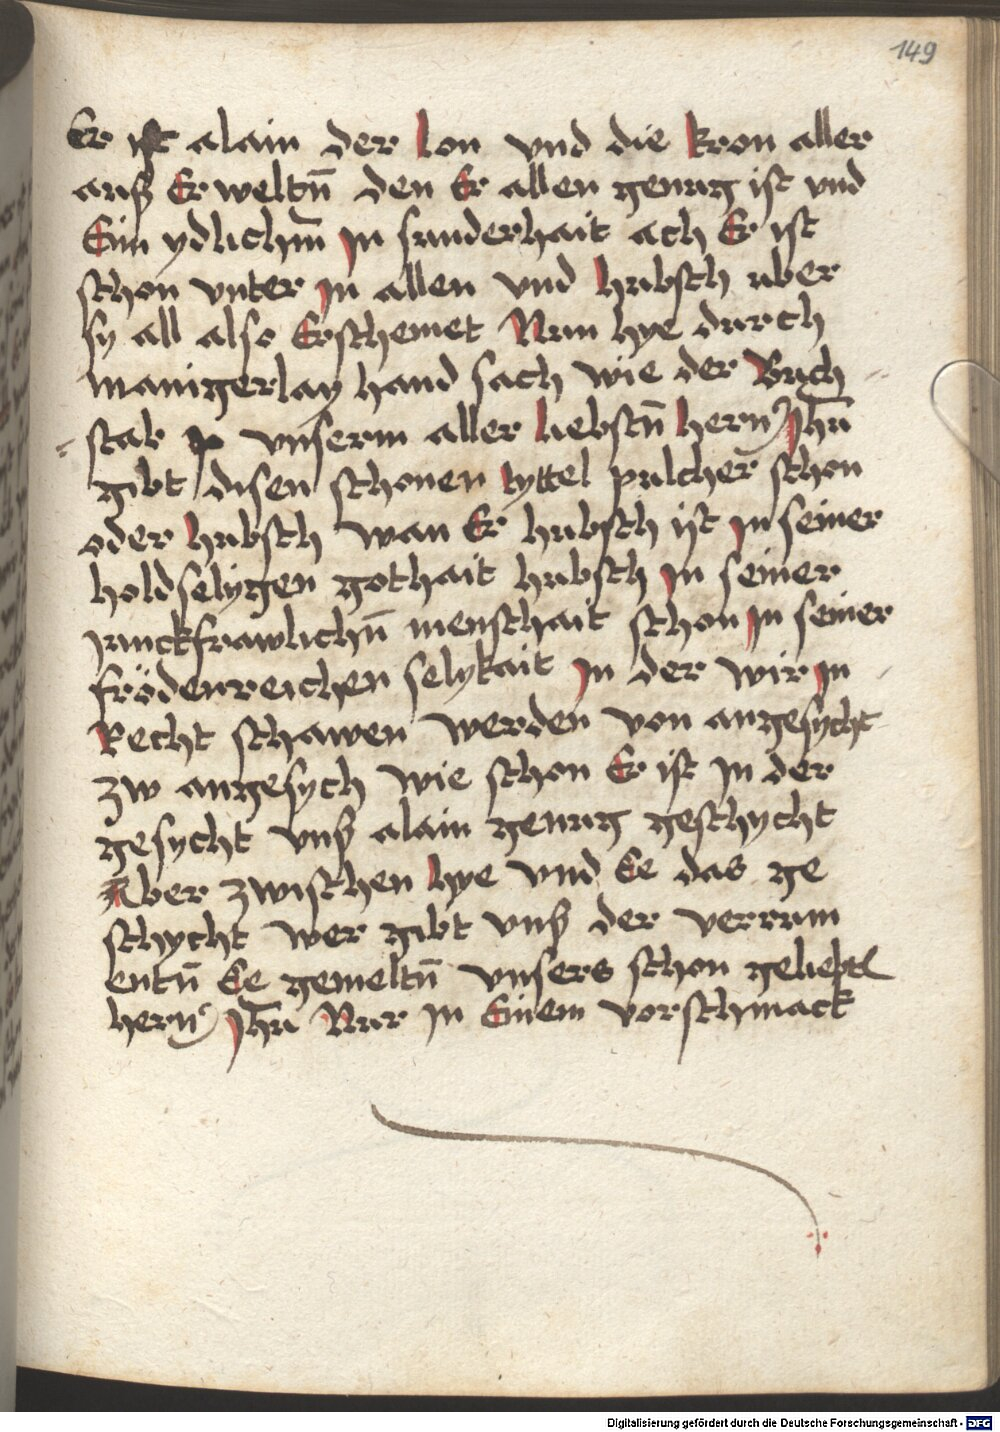 149
Er ist alain der lon vnd die kron aller
auß Er weltn̄ den Er allen genug ist vnd
Eim ydlichm̄ jn sunderhait ach Er ist
schon vnter jn allen vnd hubsch uber
sy all also Erscheinet Nun hye durch
manigerlay hand sach wie der Buch
stab p vnserm aller liebstn̄ hern Jhū
gibt disen schonen tyttel pulcher schon
oder hubsch wan Er hubsch ist jn seiner
holdselygen gothait hubsch jn seiner
junckfrawlichn̄ menschait schon jn seiner
frödenreichen selykait jn der wir jn
Recht schawen werden von angesycht
zw angesych wie schon Er ist jn der
gesycht vnß alain genug geschycht
Aber zwischen hye vnd Ee das ge
schycht wer gibt vnß der verrum
entn̄ Ee gemeltn̄ vnsers schon geliebtē
hern Jhū Nur jn Einem vorschmack
Digitalisierung gefördert durch die Deutsche Forschungsgemeinschaft - DFG